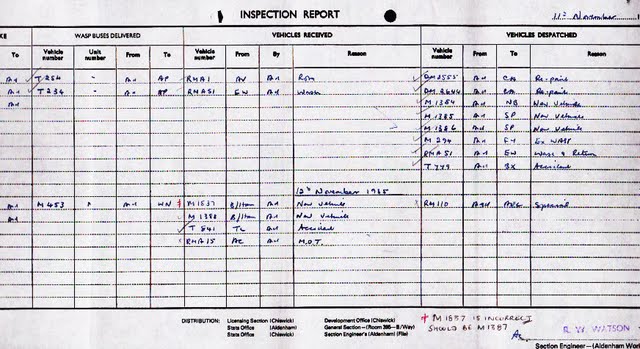 INSPECTION REPORT 11th November
KE WASP BUSES DELIVERED VEHICLES RECEIVED VEHICLES DESPATCHED
To Vehicle number Unit number From To Vehicle number From By Reason Vehicle number From To Reason
An T 254 - An AP RMA1 AV An An CA Repairs
An T 234 - An AP RMA51 EW An Wash An CA Repairs
An M 1384 An NB New Vehicle
M 1385 An SP New Vehicle
M 1386 An SP New Vehicle
M 294 An Ex WASP
RMA51 An EW Wash & Return
An SX Accident
12th November 1985
An M 453 An WN M 1537 B/Ham An New Vehicle RM110 Ash AVG
An M 1388 B/Ham An New Vehicle
T 541 TL An Accident
RMA15 AC An M.O.T.
DISTRIBUTION: Licensing Section (Chiswick) Development Office (Chiswick)
Stats Office (Aldenham) General Section—(Room 386—B/Way)
Stats Office (Chiswick) Section Engineer's (Aldenham) (File)
M 1537 IS INCORRECT
SHOULD BE M1387
R. W. WATSON
Section Engineer—(Aldenham Wor